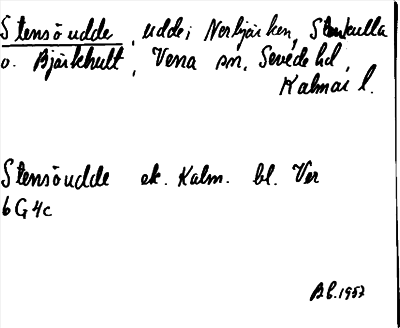 Stensöudde, udde i Norbjärken, Stenkulla
o. Bjärkhult, Vena sn, Sevede hd,
Kalmar l.
Stensöudde ek. Kalm. bl. Ver
6G4c
B.l. 1957